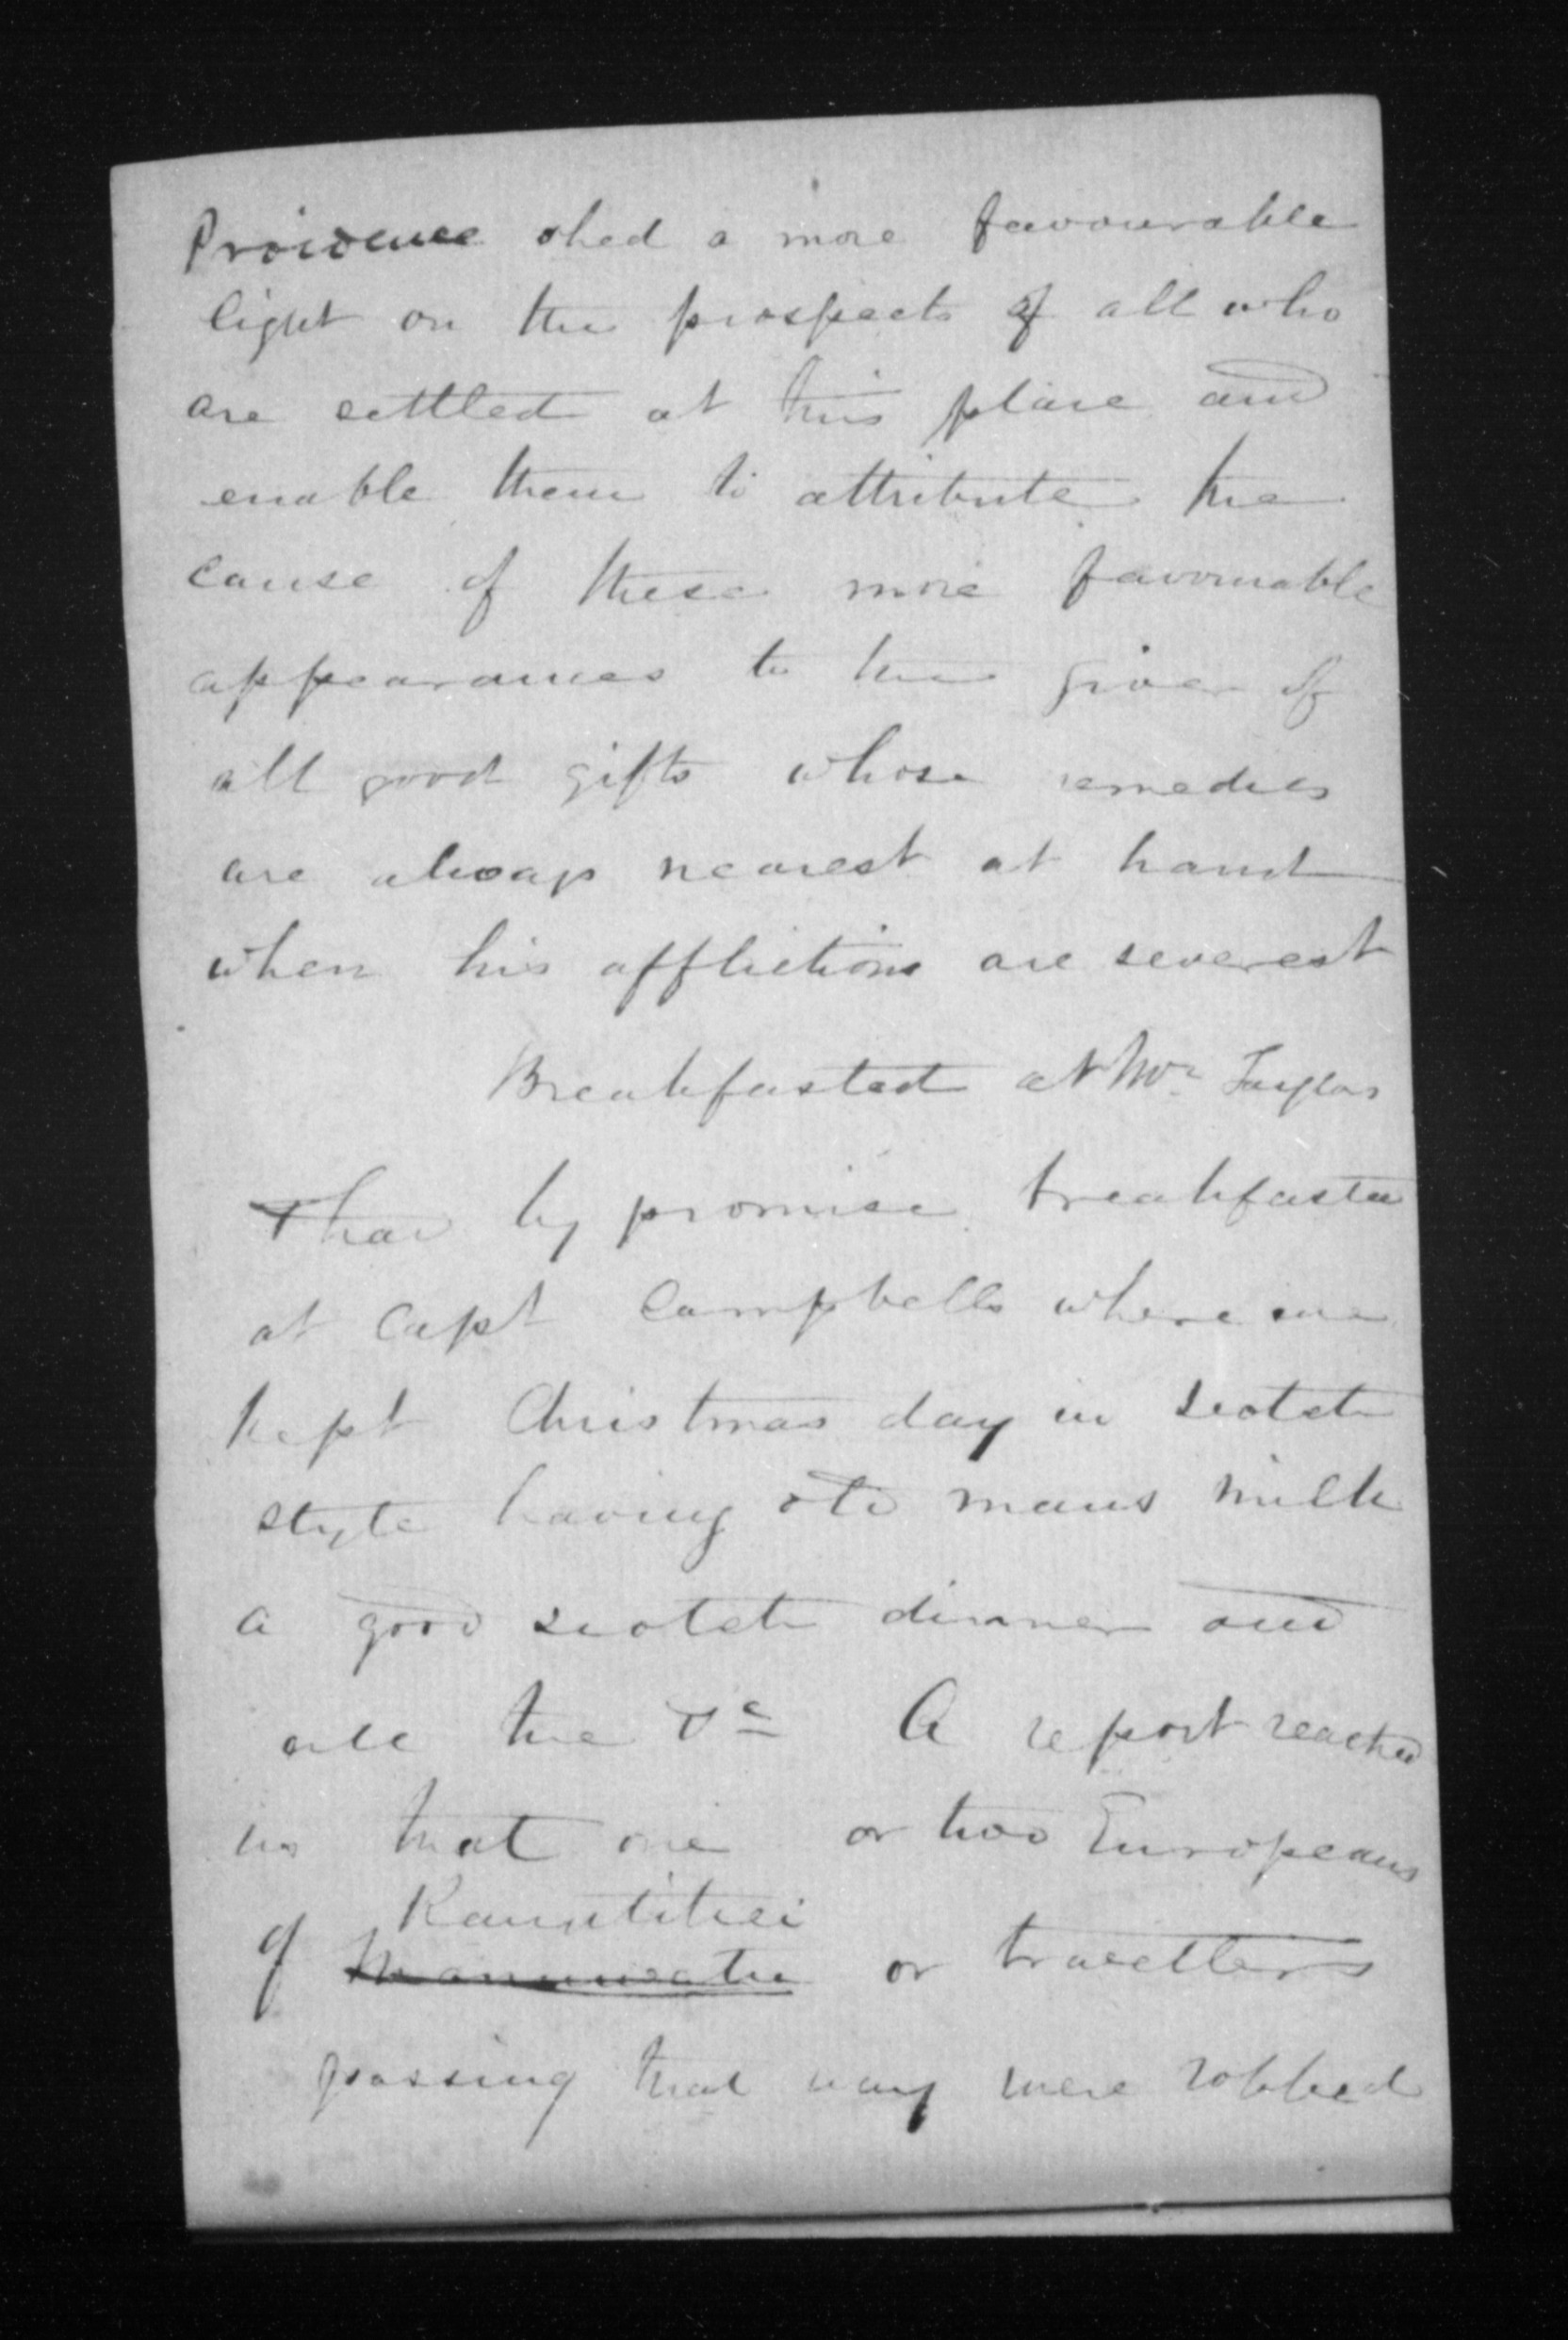 Providence shed a more favourable
light on the prospects of all who
are settled at this place and
enable them to attribute the
cause of these more favourable
appearances to the giver of
all good gifts whose remedies
are always nearest at hand
when his afflictions are severest
Breakfasted at Mr Taylors
I had by promise breakfasted
at Capt Campbells where we
kept Christmas day in scotch
style having old mans milk
a good scotch dinner and
all the &c A report reached
us that one or two Europeans
Rangitikei
of Manawatu or travellers
passing that way were robbed